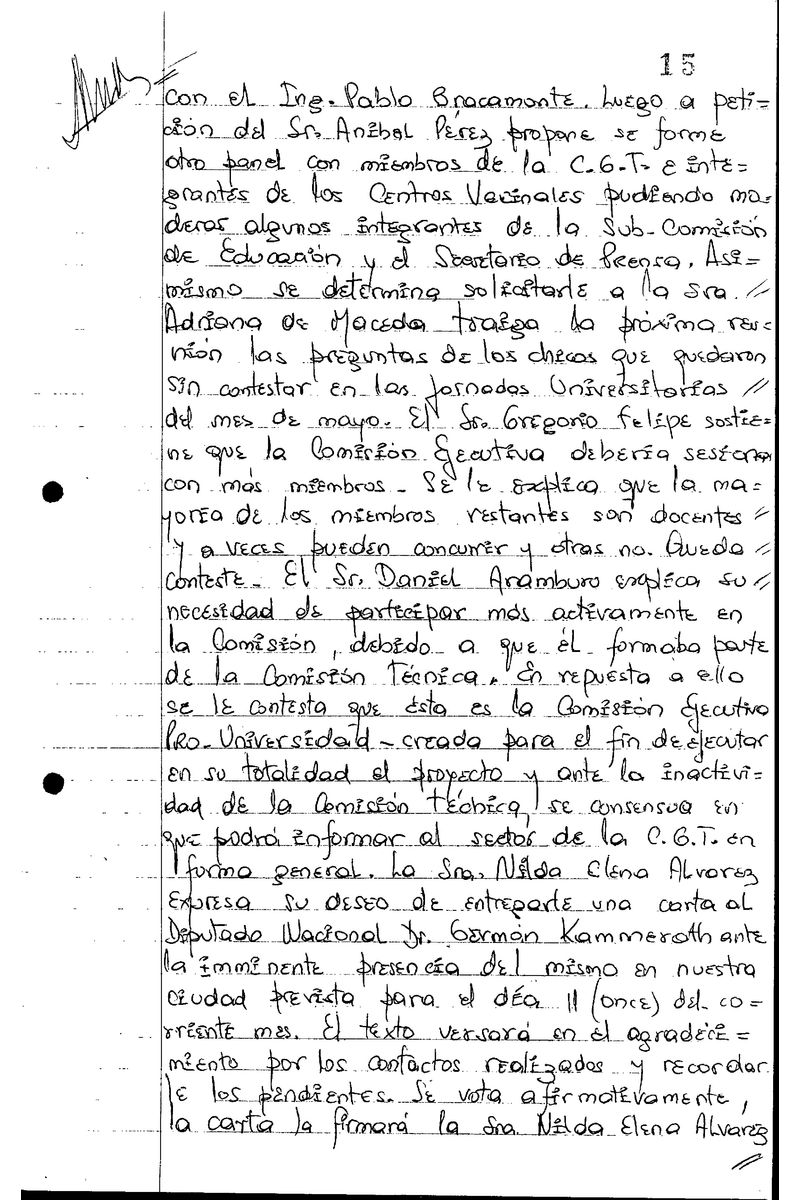 15
con el Ing. Pablo Bracamonte. Luego a peti=
ción del Sr. Anibal Pérez propone se forme
otro panel con miembros de la C.G.T. e inte=
grantes de los Centros Vecinales pudiendo mo-
derar algunos integrantes de la Sub-Comisión
de Educación y el Secretario de Prensa. Asi=
mismo se determina solicitarle a la Sra. //
Adriana de Maceda traiga la próxima reu-
nión las preguntas de los chicos que quedaron
sin contestar en las Jornadas Universitarias //
del mes de mayo. El Sr. Gregorio Felipe sostie=
ne que la Comisión Ejecutiva debería sesionar
con más miembros - Se le explica que la ma-
yoría de los miembros restantes son docentes //
y a veces pueden concurrir y otras no. Queda //
conteste - El Sr. Daniel Aramburo explica su //
necesidad de participar más activamente en
la Comisión, debido a que él formaba parte
de la Comisión Técnica. En repuesta a ello
se le contesta que ésta es la Comisión Ejecutiva
Pro-Universidad - creada para el fin de ejecutar
en su totalidad el proyecto y ante la inactivi-
dad de la Comisión Técnica, se consensua en
que podrá informar al sector de la C.G.T. en
forma general. La Sra. Nilda Elena Alvarez
Expresa su deseo de entregarle una carta al
Diputado Nacional Dr. Germán Kammerath ante
la imminente presencia del mismo en nuestra
ciudad prevista para el día 11 (once) del co=
rriente mes. El texto versará en el agradeci=
miento por los contactos realizados y recordar
le los pendientes. Se vota afirmativamente,
la carta la firmará la Sra. Nilda Elena Alvarez
//